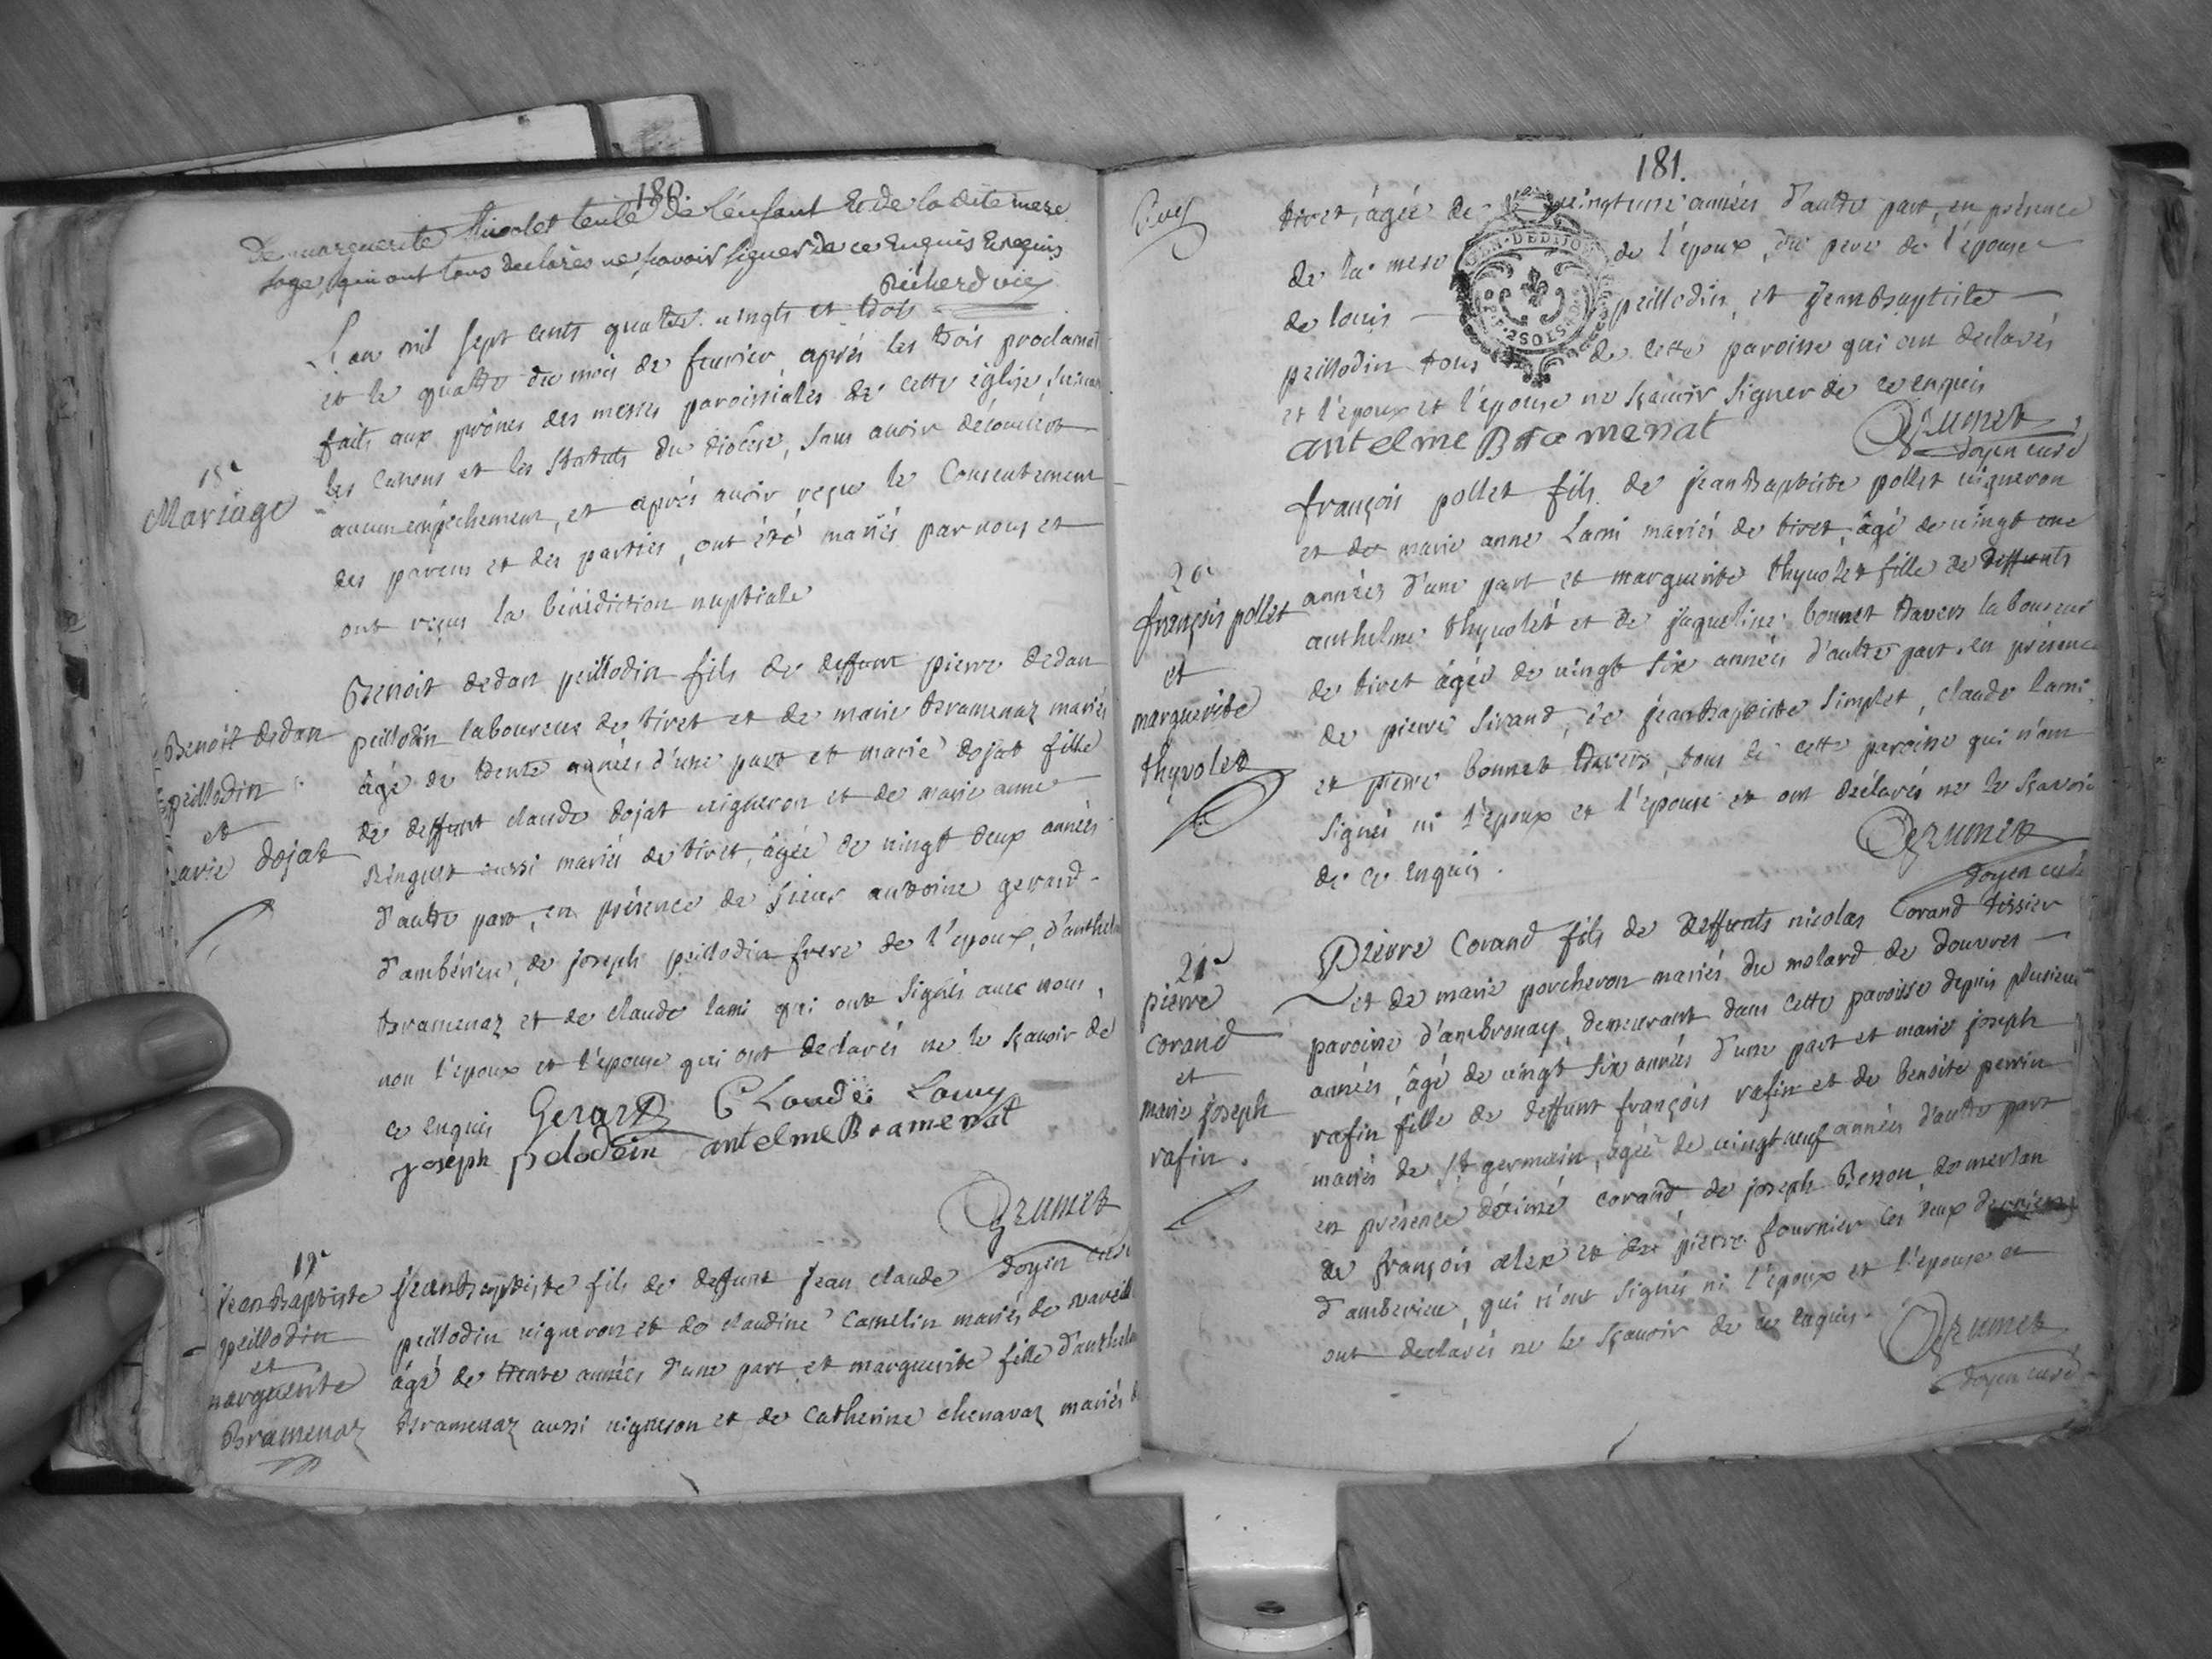 180.
De marguerite thivolet tente de l'enfant Et de la dite mere
sage, qui ont tous declarés ne scavoir signer de ce Enquis Erequis
Richerd vic
L'an mil sept cents quatre vingts et trois
et le quatre du mois de fevrier après les trois proclamat
faits aux prônes des messes paroissiales de cette église suivant
les canons et les statuts du diocèse, sans avoir découvert
aucun empêchement, et après avoir reçu le Consentement
des parens et des parties, ont été mariés par nous et
ont reçus la bénédiction nuptiale
18e
Mariage
Benoit dedan
peillodin
et
marie dojat
Benoit dedan peillodin fils de deffunt pierre dedan
peillodin laboureur de tiret et de marie bramenaz mariés
âgé de trente années d'une part et marie dojat fille
de deffunt claude dojat vigneron et de marie anne
aussi mariés de tiret, âgée de vingt deux années
d'autre part, en présence de sieur antoine gerard
d'ambérieu, de joseph peillodin frere de l'epoux, d'anthelm
bramenaz et de claude lami qui ont signés avec nous,
non l'epoux et l'epouse qui ont declarés ne le sçavoir de
ce enquis Gerard Claude Lamy
joseph pelodein antelme Bramenat
Grumet
doyen curé
19e
Jean Baptiste
peillodin
et
marguerite
Bramenaz
Jean Baptiste fils de deffunt jean claude
peillodin vigneron et de claudine Camelin mariés de
âgé de trente années d'une part et marguerite fille d'anthelm
bramenaz aussi vigneron et de Catherine chenavaz mariés d
181.
tiret, âgée de vingt une années d'autre part, en présence
de la mere de l'époux, du pere de l'épouse
de louis peillodin, et jean baptiste
peillodin tous de cette paroisse qui ont declarés
et l'epoux et l'épouse ne sçavoir signer de ce enquis
GEN. DE DIJON
antelme Bramenat
Grumet
doyen curé
20e
françois pollet
et
marguerite
thyvolet
françois pollet fils de jean Baptiste pollet vigneron
et de marie anne Lami mariés de tiret, âgé de vingt une
années d'une part et marguerite thyvolet fille de deffunts
anthelme thyvolet et de jaqueline bonnet travers laboureur
de tiret âgée de vingt six années d'autre part, en présence
de pierre sirand, de jean baptiste simplet, claude lami
et pierre bonnet travers, tous de cette paroisse qui n'ont
signés ni l'époux et l'epouse et ont déclarés ne le sçavoir
de ce enquis.
Grumet
doyen curé
21e
pierre
corand
et
marie joseph
rafin.
Pierre Corand fils de deffunts nicolas Corand tissier
et de marie porcheron mariés du molard de douvres
paroisse d'ambronay, demeurant dans cette paroisse depuis plusieurs
années, âgé de vingt six années d'une part et marie joseph
rafin fille de deffunt françois rafin et de benoite perrin
mariés de St germain, âgée de vingt neuf années d'autre part
en présence corand, de joseph Besson, de merlan
de françois alex et de pierre fournier ces deux derniers
d'amberieu, qui n'ont signés ni l'époux et l'epouse et
ont declarés ne le sçavoir de ce enquis.
Grumet
doyen curé